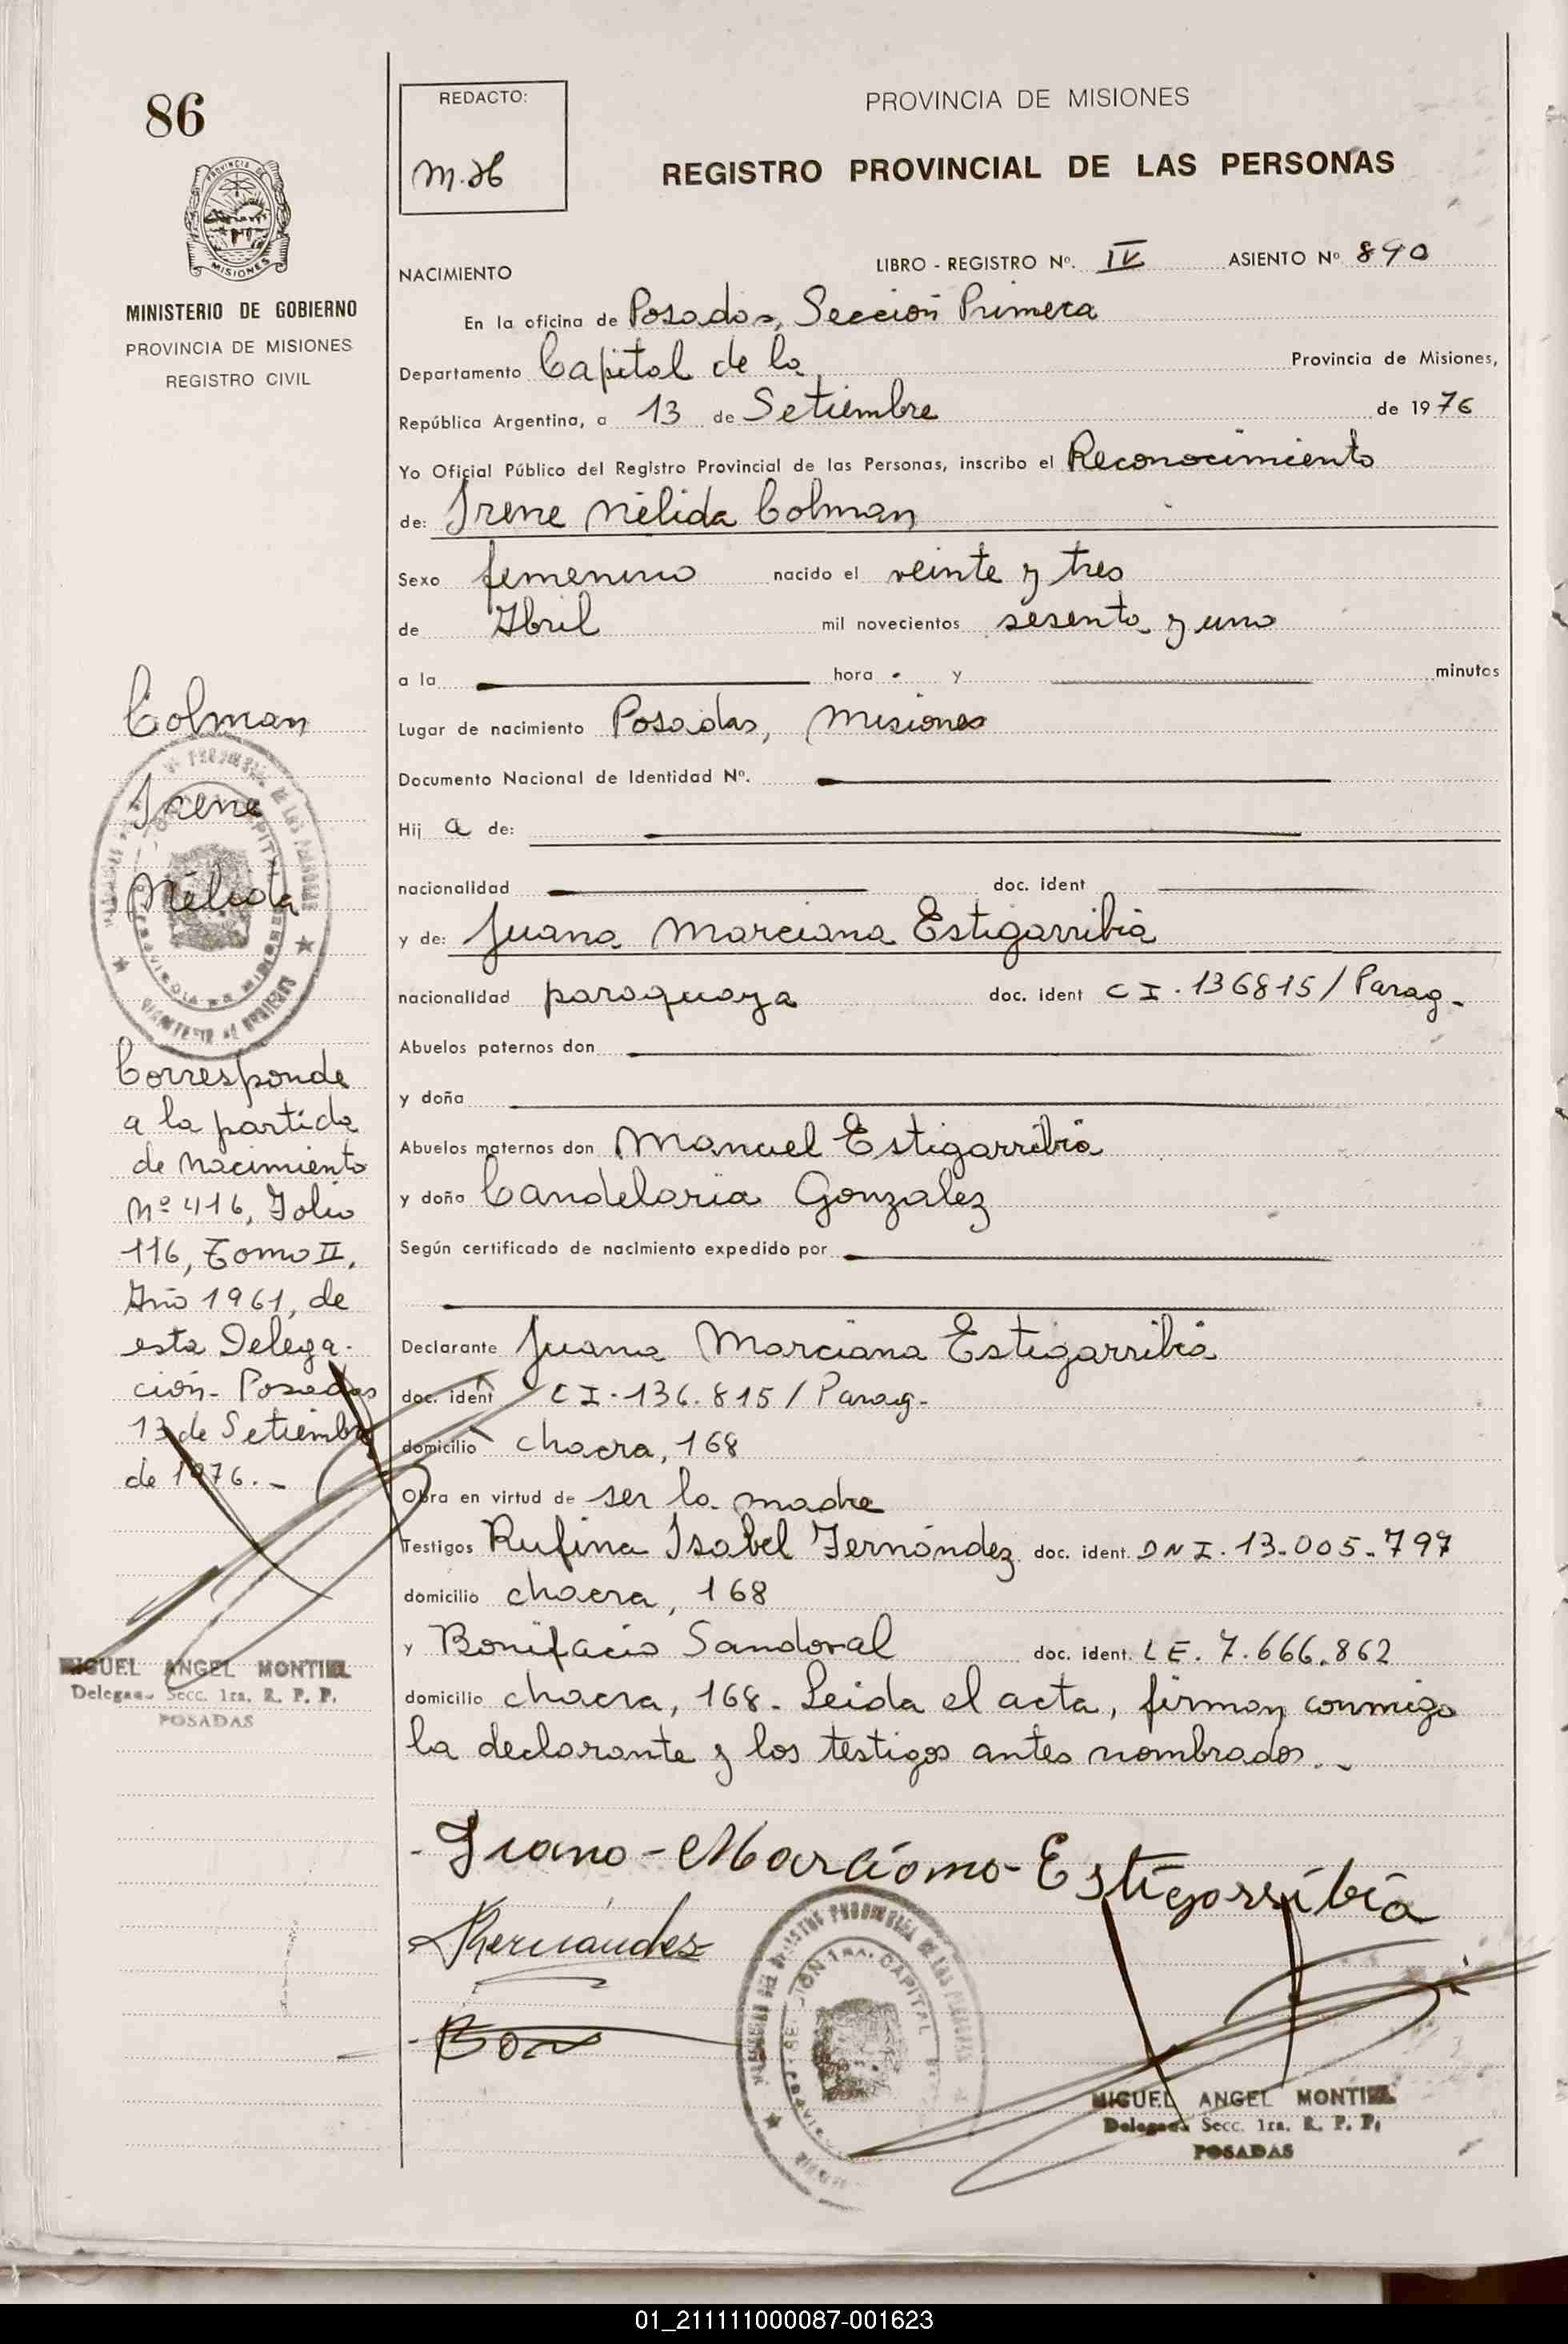 86
PROVINCIA DE
MISIONES
MINISTERIO DE GOBIERNO
PROVINCIA DE MISIONES
REGISTRO CIVIL
REDACTO:
M.H
PROVINCIA DE MISIONES
REGISTRO PROVINCIAL DE LAS PERSONAS
NACIMIENTO
LIBRO - REGISTRO Nº. IV ASIENTO Nº 890
En la oficina de Posadas, Sección Primera
Departamento Capital de la Provincia de Misiones,
República Argentina, a 13 de Setiembre de 1976
Yo Oficial Público del Registro Provincial de las Personas, inscribo el Reconocimiento
de: Irene Nélida Colman
Sexo femenino nacido el veinte y tres
de Abril mil novecientos sesenta y uno
a la hora y minutos
Lugar de nacimiento Posadas, Misiones
Documento Nacional de Identidad Nº.
Hij a de:
nacionalidad doc. ident
y de: Juana Marciana Estigarribia
nacionalidad paraguaya doc. ident C I. 136815/Parag-
Abuelos paternos don
y doña
Abuelos maternos don Manuel Estigarribia
y doña Candelaria Gonzalez
Según certificado de nacimiento expedido por
Declarante Juana Marciana Estigarribia
doc. ident C I. 136.815/Parag-
domicilio chacra, 168
Obra en virtud de ser la madre
Testigos Rufina Isabel Fernández doc. ident. DNI. 13.005.797
domicilio chacra, 168
y Bonifacio Sandoval doc. ident. LE. 7.666.862
domicilio chacra, 168- Leida el acta, firman conmigo
la declarante y los testigos antes nombrados.-
Juana-Marciana-Estigarribia
MIGUEL ANGEL MONTIEL
Delegado Secc. 1ra. R. P. P.
POSADAS
Colman
Irene
Nélida
Corresponde
a la partida
de nacimiento
Nº 416, Folio
116, Tomo II,
Año 1961, de
esta Delega-
ción- Posadas
13 de Setiembre
de 1976.-
MIGUEL ANGEL MONTIEL
Delegado Secc. 1ra. R. P. P.
POSADAS
01_211111000087-001623